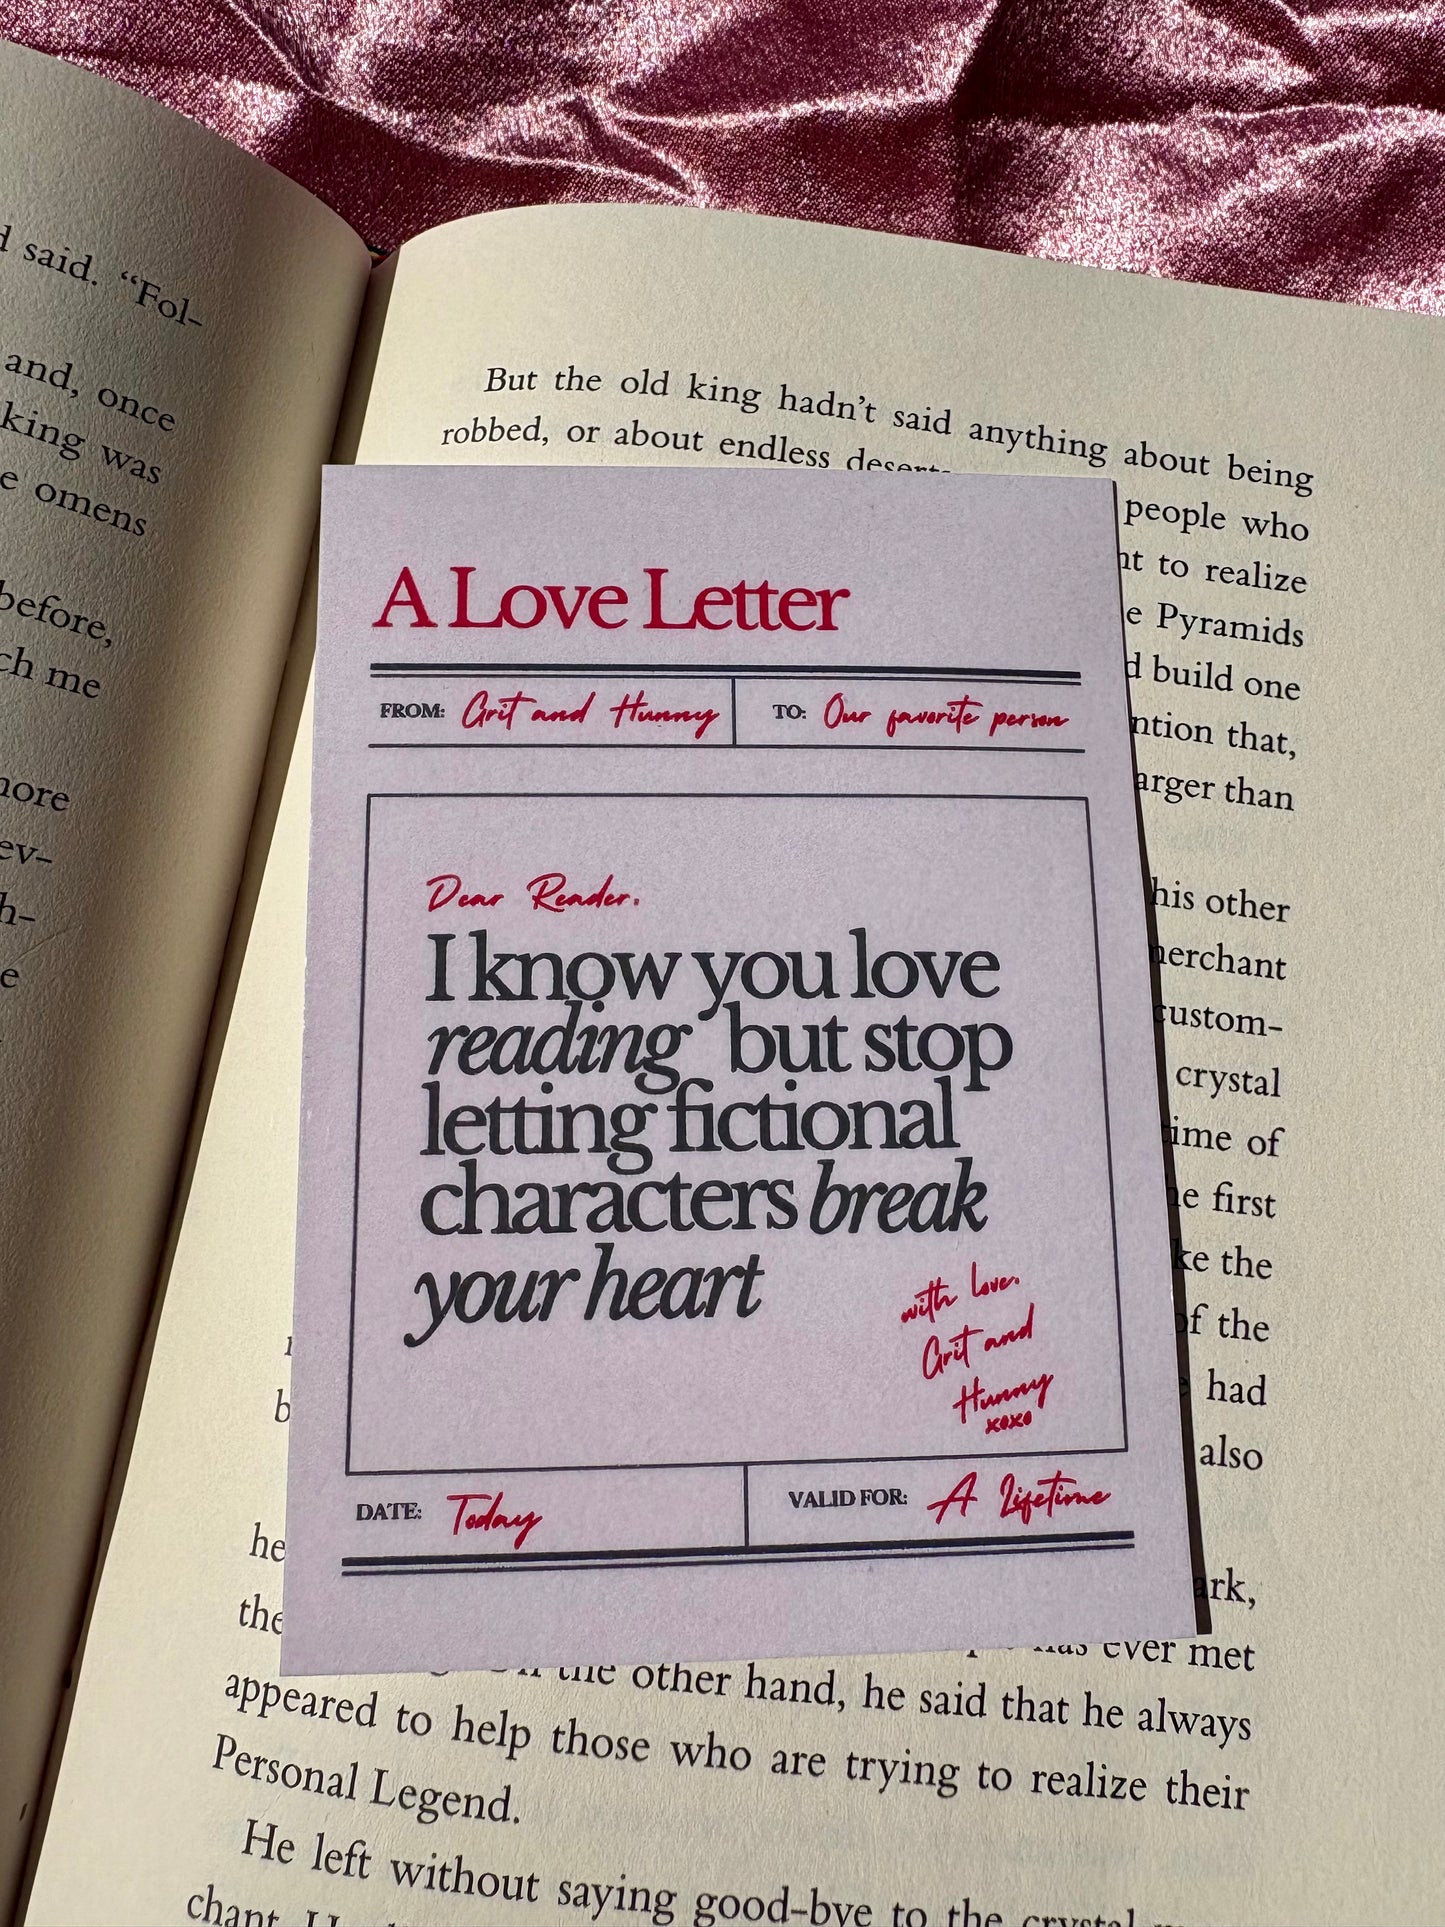 d said. “Fol-
and, once
king was
e omens
before,
ch me
nore
ev-
h-
e
But the old king hadn’t said anything about being
robbed, or about endless
people who
nt to realize
e Pyramids
d build one
ntion that,
arger than
his other
merchant
custom-
crystal
time of
he first
ke the
of the
had
also
A Love Letter
FROM: Grit and Hunny
TO: Our favorite person
Dear Reader.
I know you love
reading but stop
letting fictional
characters break
your heart
with love.
Grit and
Hunny
xoxo
DATE: Today
VALID FOR: A Lifetime
b
he
ark,
the
has ever met
the other hand, he said that he always
appeared to help those who are trying to realize their
Personal Legend.
He left without saying good-bye to the crystal